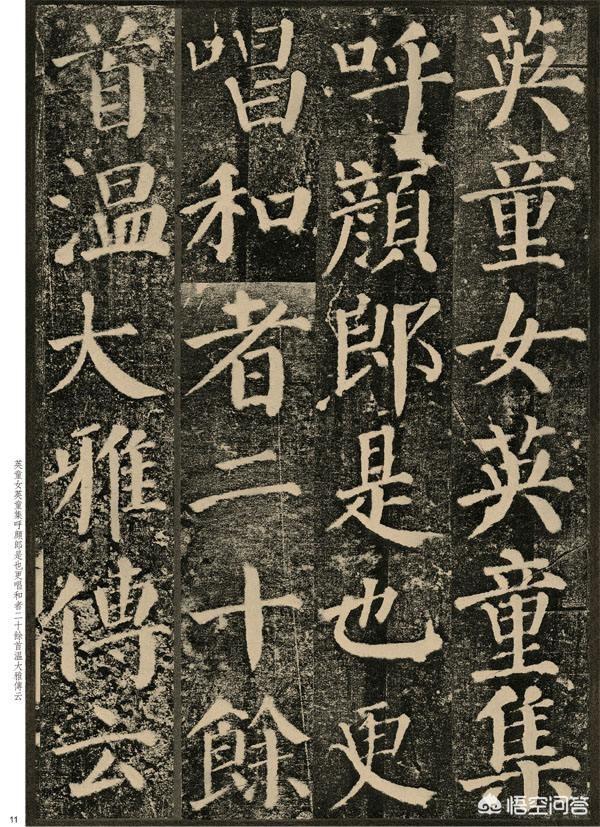 英童女英童集
呼顏郎是也更
唱和者二十餘
首溫大雅傳云
英童女英童集呼顏郎是也更唱和者二十餘首溫大雅傳云
11
悟空问答